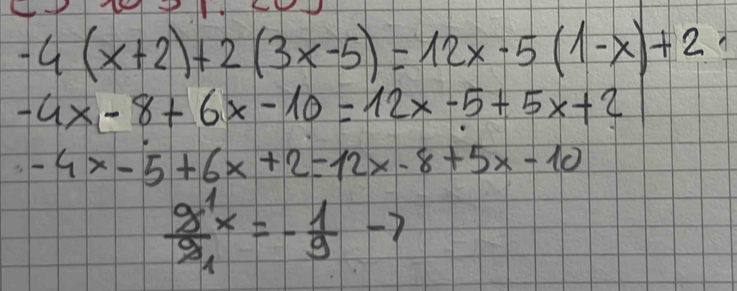 -4(x+2)+2(3x-5)=12x-5(1-x)+2
-4x-8+6x-10=12x-5+5x+2
-4x-5+6x+2=12x-8+5x-10
9/9 x = -1/9 →